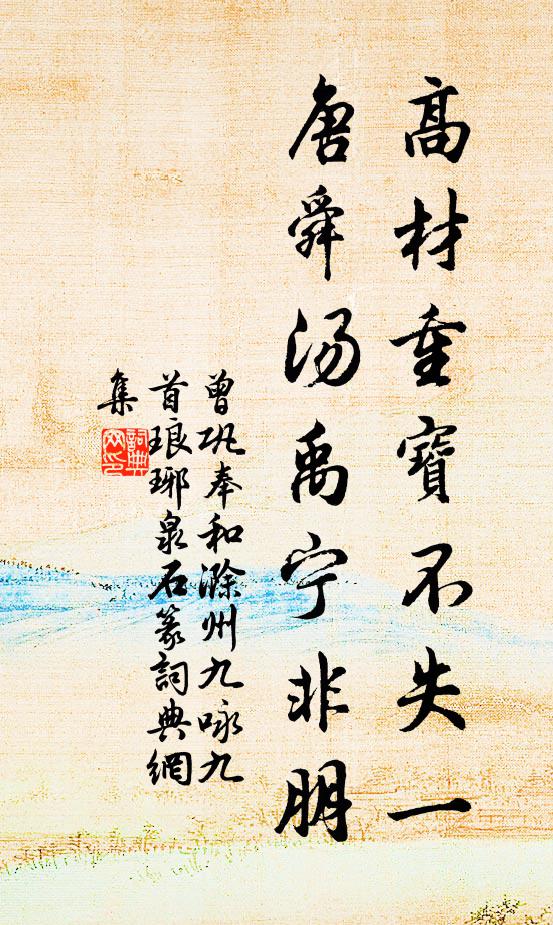 高材重寶不失一
唐舜湯禹宁非明
曾巩奉和滁州九咏九
首琅琊泉石篆詞典網
集
詞典
网印